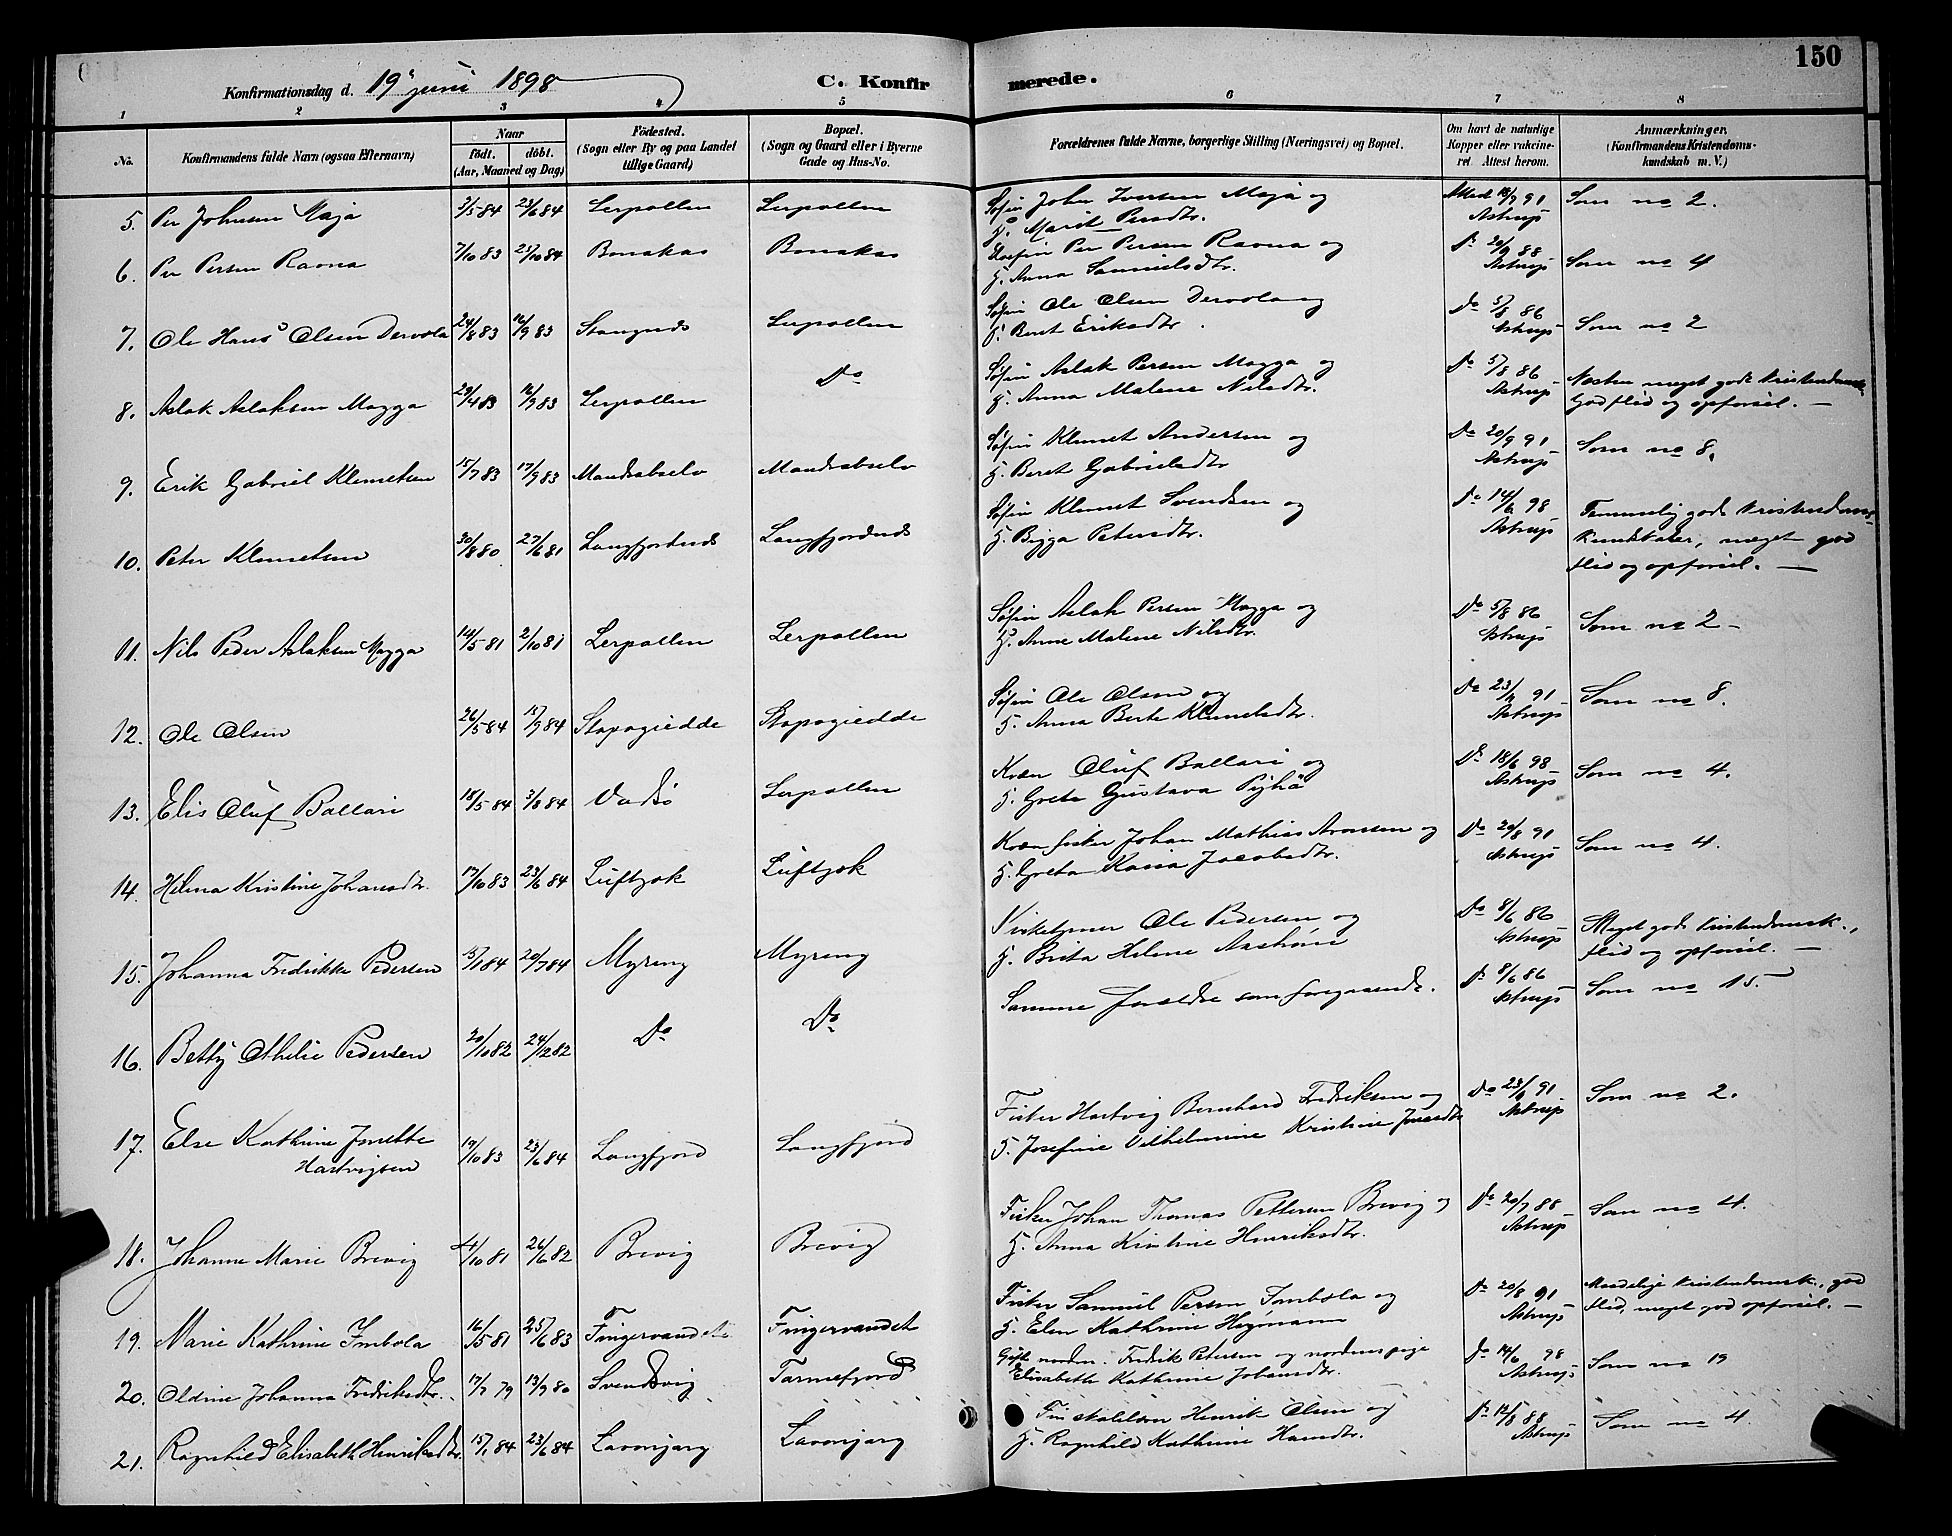 150
Konfirmationsdag d. 19de juni 1898
C. Konfirmerede.
1 2 3 4 5 6 7 8
No.
Konfirmandens fulde Navn (ogsaa Efternavn)
Naar
födt. döbt.
(Aar, Maaned og Dag)
Födested.
(Sogn eller By og paa Landet
tillige Gaard)
Bopæl.
(Sogn og Gaard eller i Byerne
Gade og Hus-No.
Forældrenes fulde Navne, borgerlige Stilling (Næringsvei) og Bopæl.
Om havt de naturlige
Kopper eller vakcineret
Attest herom.
Anmærkninger.
(Konfirmandens Kristendoms-
kundskab m. V.)
5. Per Johnsen Maja 3/5 84 23/6 84 Lerpollen Lerpollen Søfin John Iversen Maja og
H. Marit Persdtr. Astrup Som no 2.
6. Per Persen Ravna 7/10 83 25/10 84 Bonakas Bonakas Per Persen Ravna og
H. Anna Samuelsdtr. Do 20/9 88 Astrup Som no 4
7. Ole Hans Olsen Dervola 24/8 83 16/9 83 Stangnes Lerpollen Søfin Ole Olsen Dervola og
H. Beret Eriksdtr. Do 5/8 86 Astrup Som no 2
8. Aslak Aslaksen Magga 29/4 83 16/9 83 Lerpollen Do Søfin Aslak Persen Magga og
H. Anna Malene Nilsdtr. Do 5/8 86 Astrup Næsten meget god kristendomsk.
God flid og opførsel. —
9. Erik Gabriel Klemetsen 15/7 83 17/9 83 Mandrabselv Mandrabselv Søfin Klemet Andersen og
H. Beret Gabrielsdtr Do 20/9 91 Astrup Som no 8.
10. Peter Klemetsen 30/8 80 27/6 81 Langfjordnes Langfjordnes Søfin Klemet Svendsen og
H. Bigga Petersdtr. Do 14/6 98 Astrup Temmelig gode kristendoms-
kundskaber, meget god
flid og opførsel. —
11. Nils Peder Aslaksen Magga 14/5 81 2/10 81 Lerpollen Lerpollen Søfin Aslak Persen Magga og
H. Anne Malene Nilsdtr. Do 5/8 86 Astrup Som no 2 -
12. Ole Olsen 26/5 84 15/9 84 Stapogiedde Stapogiedde Søfin Ole Olsen og
H. Anna Berte Klemetsdtr. Do 91 Astrup Som no 8.
13. Elis Oluf Ballari 18/5 84 3/8 84 Vadsø Lerpollen Kvæn Oluf Ballari og
H. Greta Gustava Pyhä Do 18/6 98 Astrup Som no 4.
14. Helena Kristine Johansdtr. 17/10 83 23/6 84 Luftjok Luftjok Kvæn fisker Johan Mathias Aronsen og
H. Greta Kaisa Jacobsdtr. Do 20/8 91 Astrup Som no 4.
15. Johanna Fredrikke Pedersen 15/1 84 20/7 84 Myreng Myreng Kirketjener Ole Pedersen og
H. Brita Helene Do 8/6 86 Astrup Meget god kristendomsk.,
flid og opførsel. —
16. Betty Othelie Pedersen 20/10 82 24/12 82 Do Do Samme forældre som foregaaende. Do 8/6 86 Astrup Som no 15.
17. Else Kathrine Jonette
Hartvigsen 19/10 83 23/6 84 Langfjord Langfjord Fisker Hartvig Bernhard Fredriksen og
H. Josefine Vilhelmine Kristine Do 91 Astrup Som no 2.
18. Johanne Marie Brevig 4/10 81 26/6 82 Brevig Brevig Fisker Johan Thomas Pettersen Brevig og
H. Anna Kristine Henriksdtr. Do 20/9 88 Astrup Som no 4.
19. Marie Kathrine Imbola 16/5 81 25/6 83 Fingervandet Fingervandet Fisker Samuel Persen Imbola og
H. Elen Kathrine Hegmann Do 20/8 91 Astrup Maadelige kristendomsk., god
flid, meget god opførsel. —
20. Oldine Johanna Fredriksdtr. 17/7 79 13/9 80 Svendsvig Tarmefjord Gift nordm. Fredrik Petersen og nordmpige
Elisabeth Kathrine Johansdtr. Do 14/6 98 Astrup Som no 19
21. Ragnhild Elisabeth Henriksdtr. 15/1 84 23/6 84 Lavonjarg Lavonjarg Fin Henrik Olsen og
H. Ragnhild Kathrine Hansdtr. Do 88 Astrup Som no 4